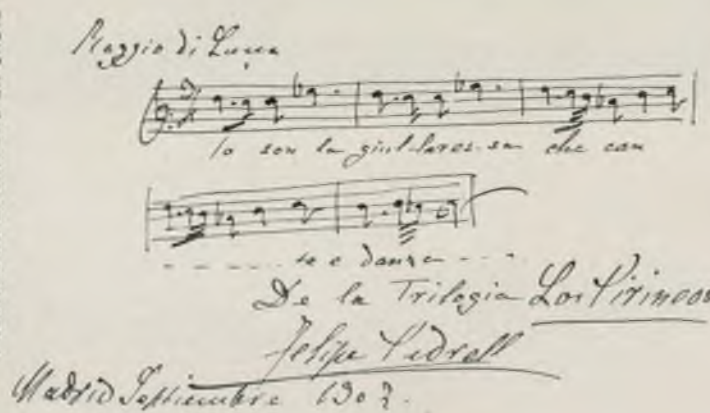 Raggio di Luna
Io son la giul-lares-sa che can
te e danza
De la Trilogia Los Pirineos
Felipe Pedrell
Madrid Septiembre 1902.